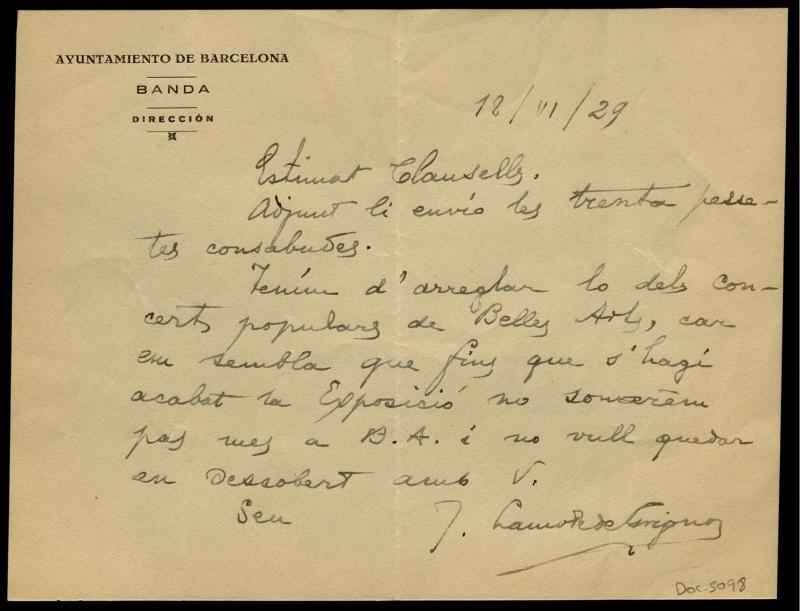 AYUNTAMIENTO DE BARCELONA
BANDA
DIRECCIÓN
18/VI/29
Estimat Clausells.
Adjunt li envío les trenta pesse-
tes consabudes.
Tením d'arreglar lo dels con-
certs populars de Belles Arts, car
em sembla que fins que s'hagi
acabat la Exposició no sonarém
pas mes a B.A. i no vull quedar
en descobert amb V.
Seu J. Lamote de Grignon
Doc. 5098